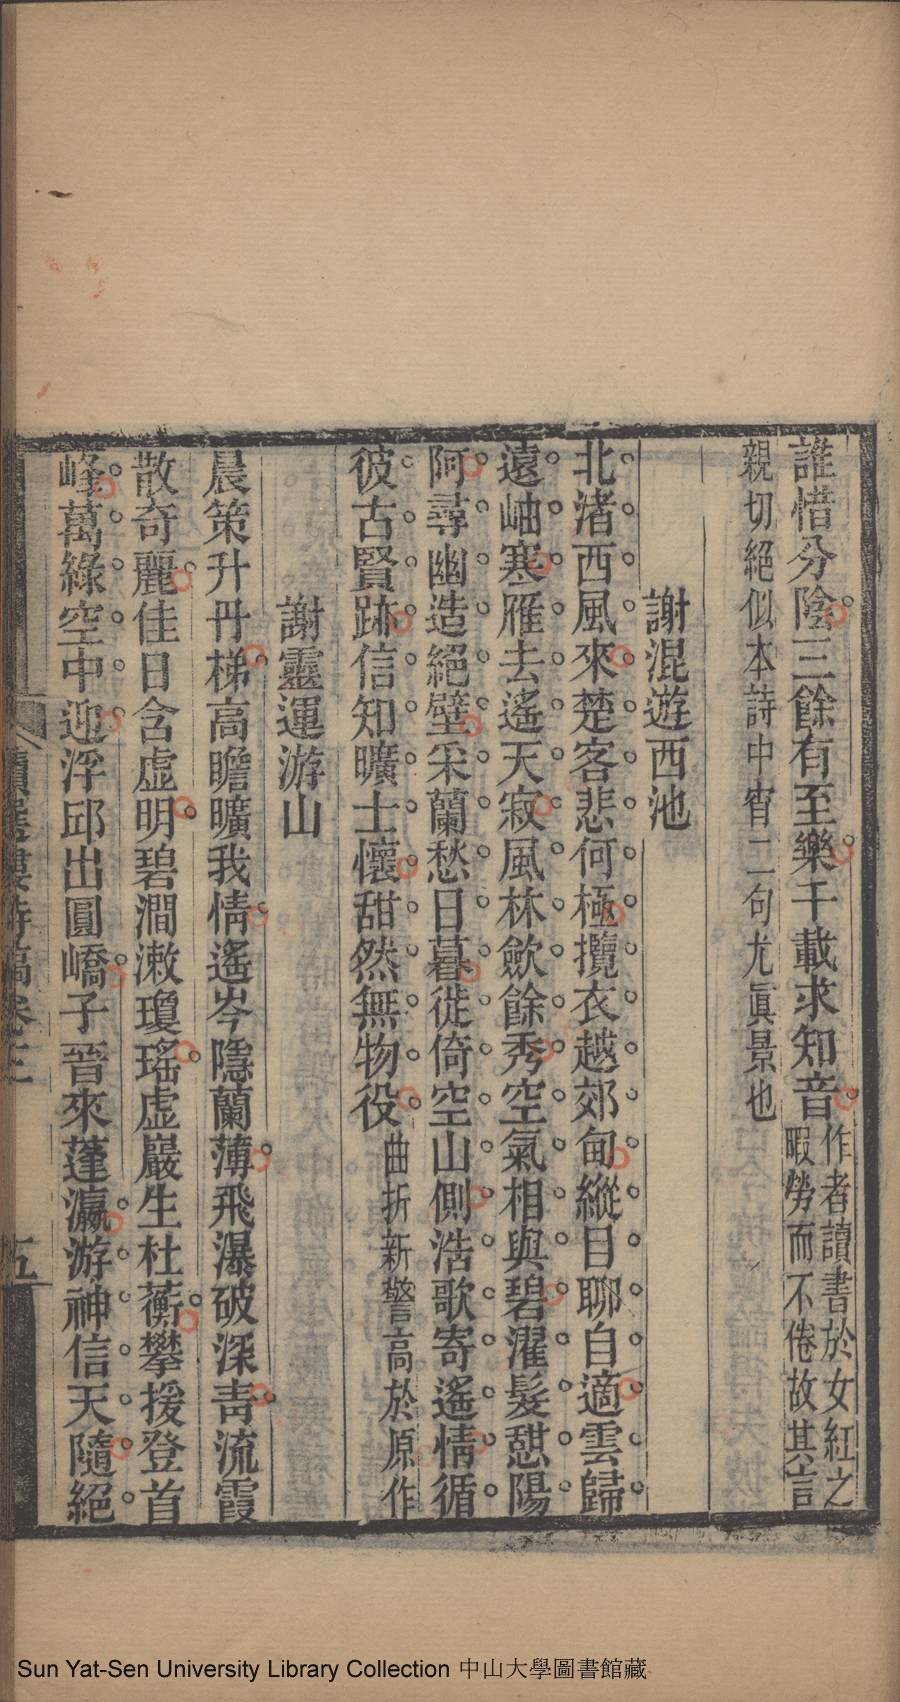 誰惜分陰三餘有至樂千載求知音作者讀書於女紅之
暇勞而不倦故其言
親切絕似本詩中宵二句尤眞景也
謝混遊西池
北渚西風來楚客悲何極攬衣越郊甸縱目聊自適雲歸
遠岫寒雁去遙天寂風林歛餘秀空氣相與碧濯髮憇陽
阿尋幽造絕壁采蘭愁日暮徙倚空山側浩歌寄遙情循
彼古賢跡信知曠士懷甜然無物役曲折新警高於原作
謝靈運游山
晨策升丹梯高瞻曠我情遙岑隱蘭薄飛瀑破深青流霞
散奇麗佳日含虛明碧澗漱瓊瑤虛巖生杜蘅攀援登首
峰萬綠空中迎浮邱出圓嶠子晉來蓬瀛游神信天隨絕
讀選樓詩稿卷三
五
Sun Yat-Sen University Library Collection 中山大學圖書館藏